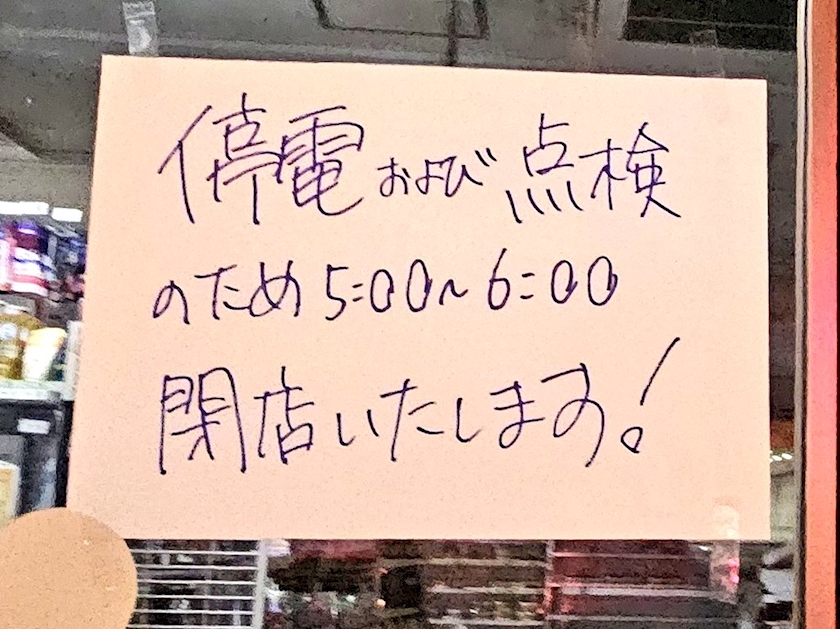 停電および点検
のため5:00~6:00
閉店いたします!